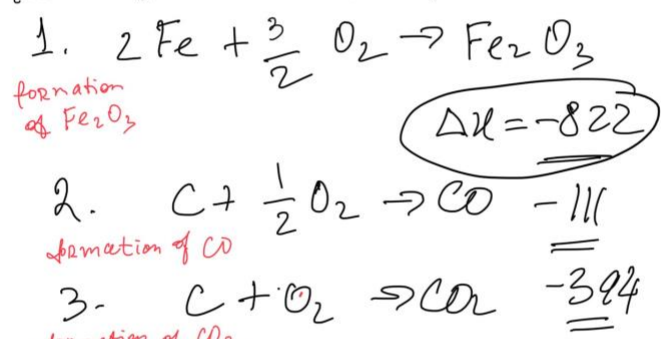 1. 2 Fe + 3/2 O₂ → Fe₂O₃
formation
of Fe₂O₃
ΔH = -822
2. C + 1/2 O₂ → CO -111
formation of CO
3. C + O₂ → CO₂ -394
of CO₂